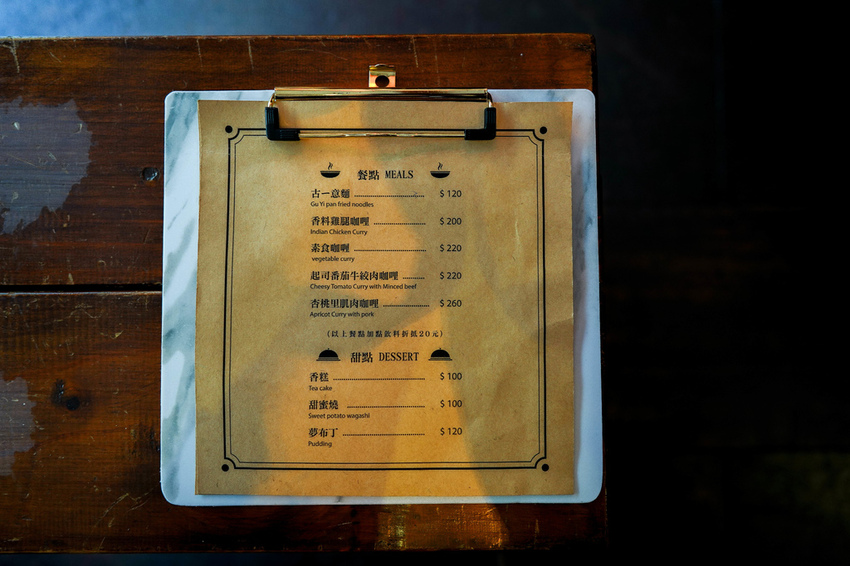 餐點 MEALS
古一意麵 $ 120
Gu Yi pan fried noodles
香料雞腿咖哩 $ 200
Indian Chicken Curry
素食咖喱 $ 220
vegetable curry
起司番茄牛絞肉咖哩 $ 220
Cheesy Tomato Curry with Minced beef
杏桃里肌肉咖哩 $ 260
Apricot Curry with pork
(以上餐點加點飲料折抵20元)
甜點 DESSERT
香糕 $ 100
Tea cake
甜蜜燒 $ 100
Sweet potato wagashi
夢布丁 $ 120
Pudding